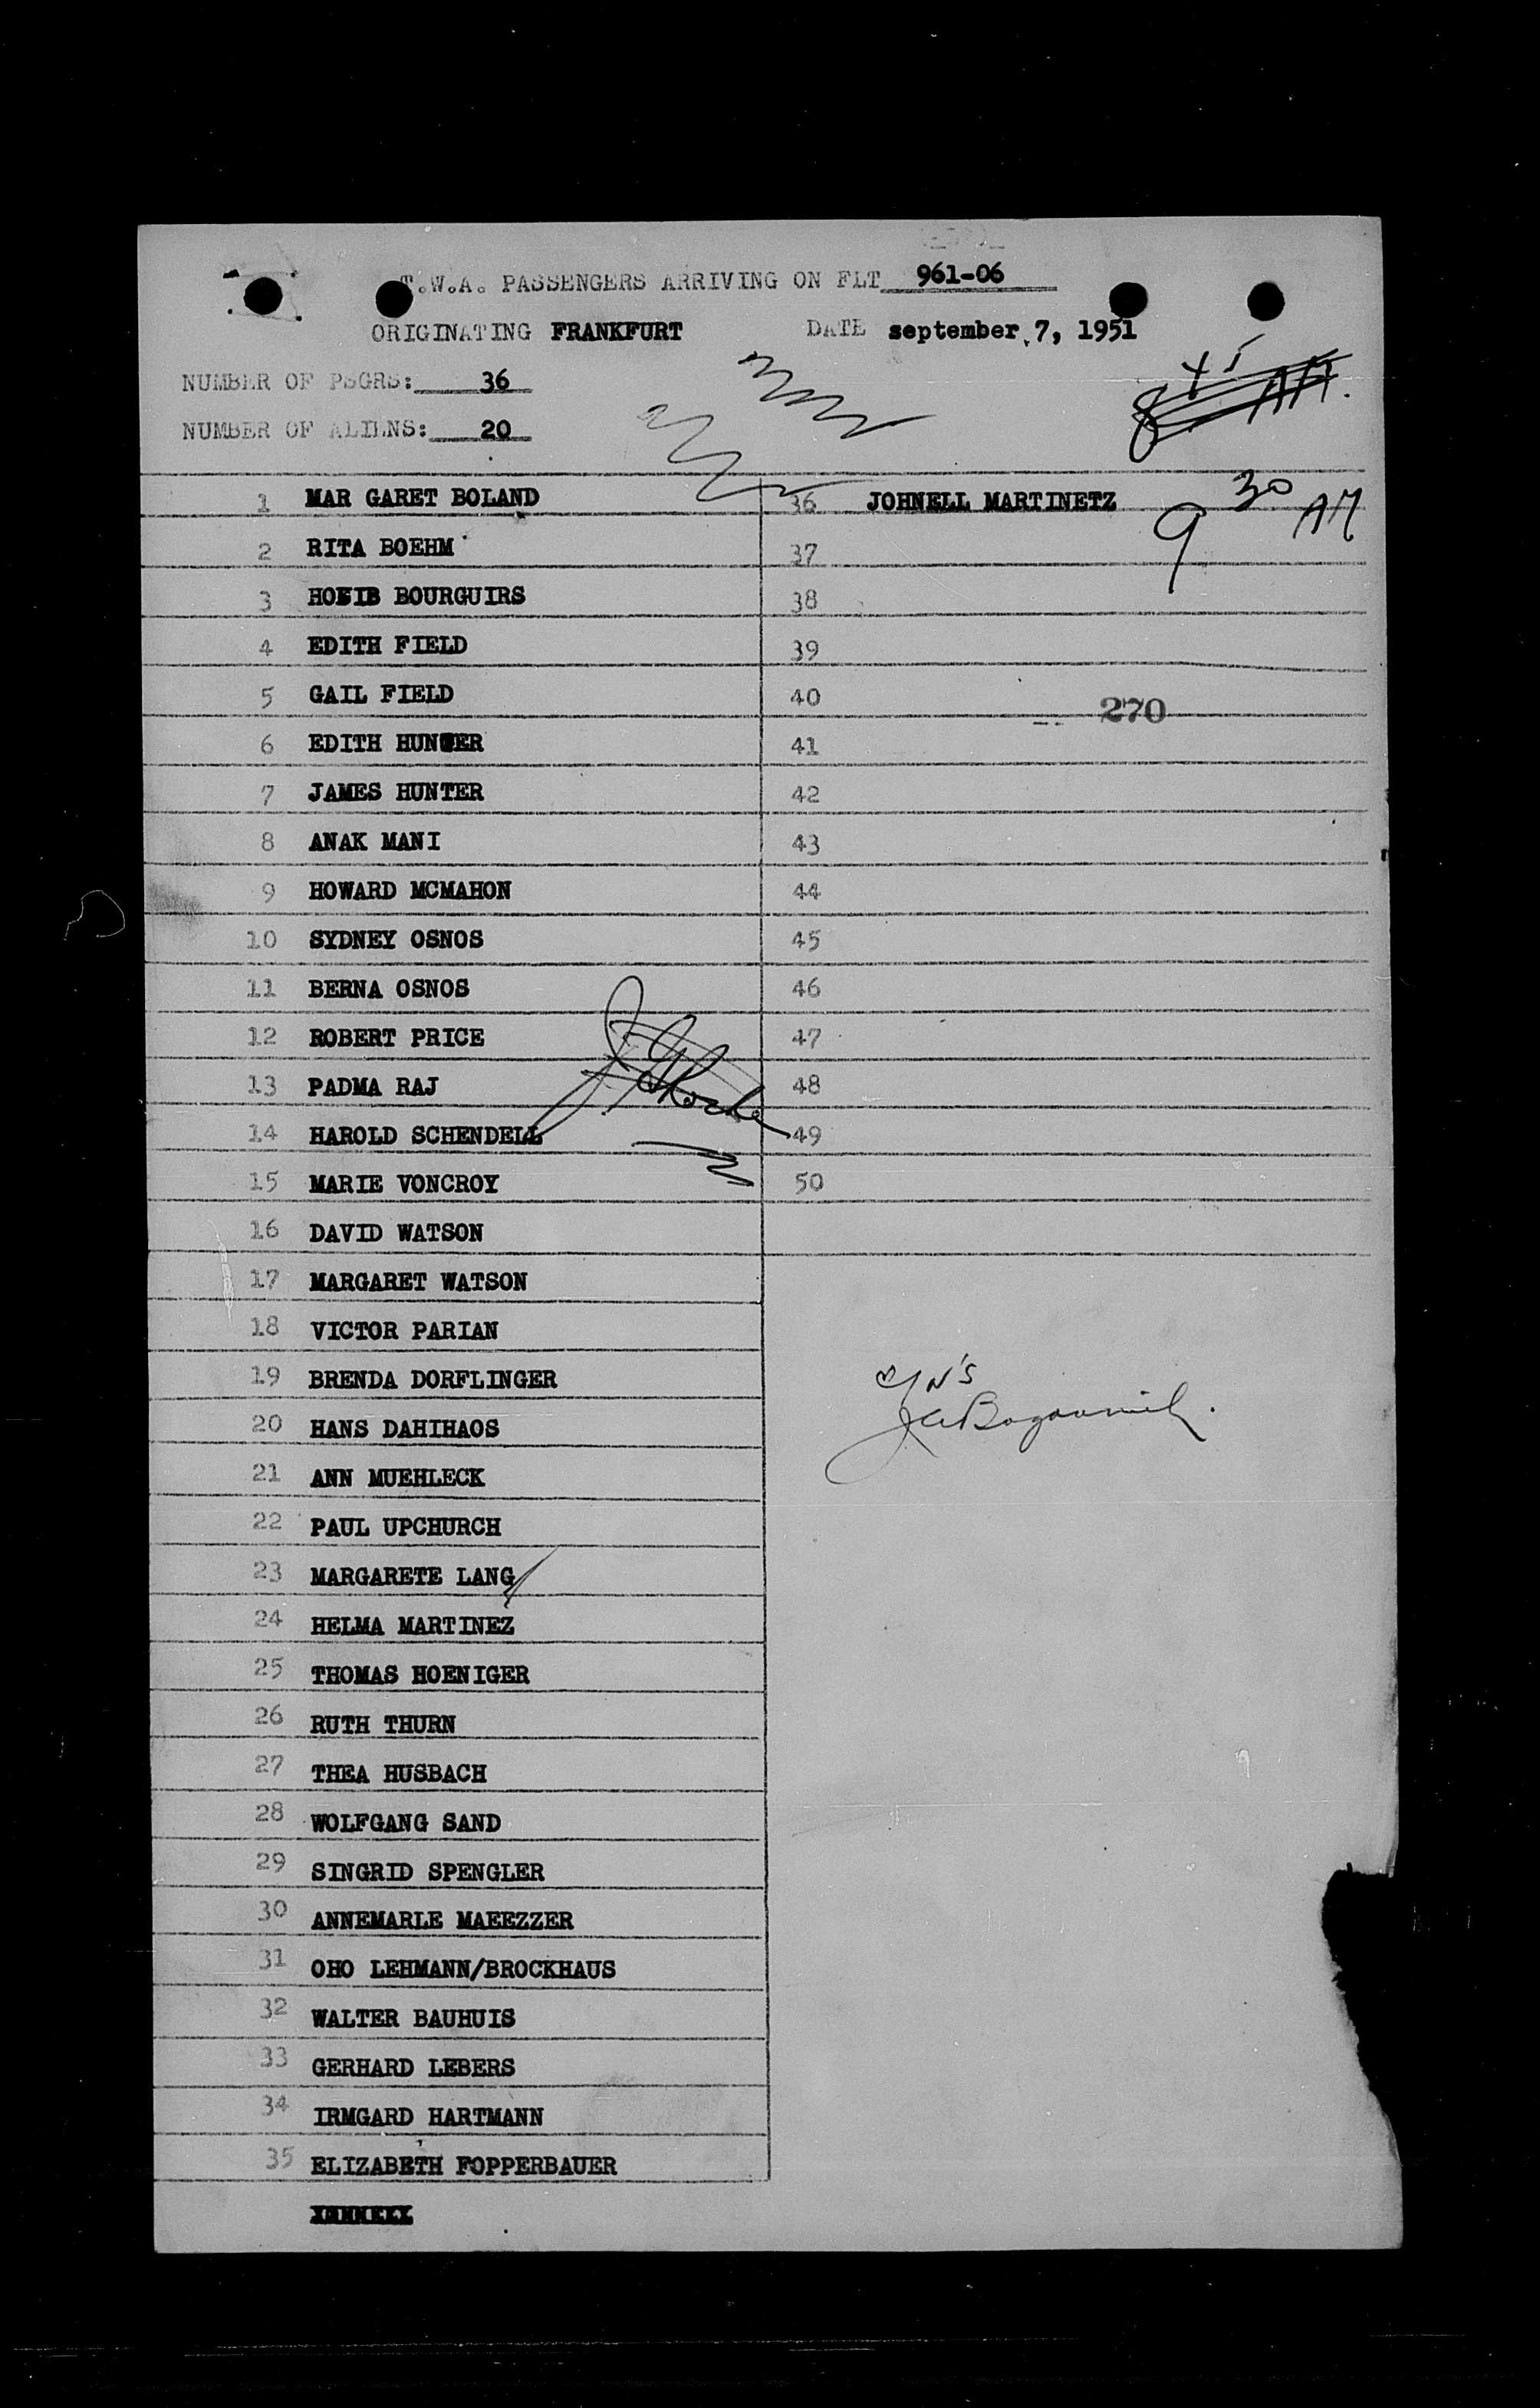 T.W.A. PASSENGERS ARRIVING ON FLT 961-06
ORIGINATING FRANKFURT DATE september 7, 1951
NUMBER OF PSGRS: 36
NUMBER OF ALIENS: 20
8 45 AM.
9 30 AM
1 MAR GARET BOLAND
2 RITA BOEHM
3 BOURGUIRS
4 EDITH FIELD
5 GAIL FIELD
6 EDITH HUNTER
7 JAMES HUNTER
8 ANAK MANI
9 HOWARD MCMAHON
10 SYDNEY OSNOS
11 BERNA OSNOS
12 ROBERT PRICE
13 PADMA RAJ
14 HAROLD SCHENDELL
15 MARIE VONCROY
16 DAVID WATSON
17 MARGARET WATSON
18 VICTOR PARIAN
19 BRENDA DORFLINGER
20 HANS DAHIHAOS
21 ANN MUEHLECK
22 PAUL UPCHURCH
23 MARGARETE LANG
24 HELMA MARTINEZ
25 THOMAS HOENIGER
26 RUTH THURN
27 THEA HUSBACH
28 WOLFGANG SAND
29 SINGRID SPENGLER
30 ANNEMARLE MAEEZZER
31 OHO LEHMANN/BROCKHAUS
32 WALTER BAUHUIS
33 GERHARD LEBERS
34 IRMGARD HARTMANN
35 ELIZABETH FOPPERBAUER
36 JOHNELL MARTINETZ
37
38
39
40
270
41
42
43
44
45
46
47
48
49
50